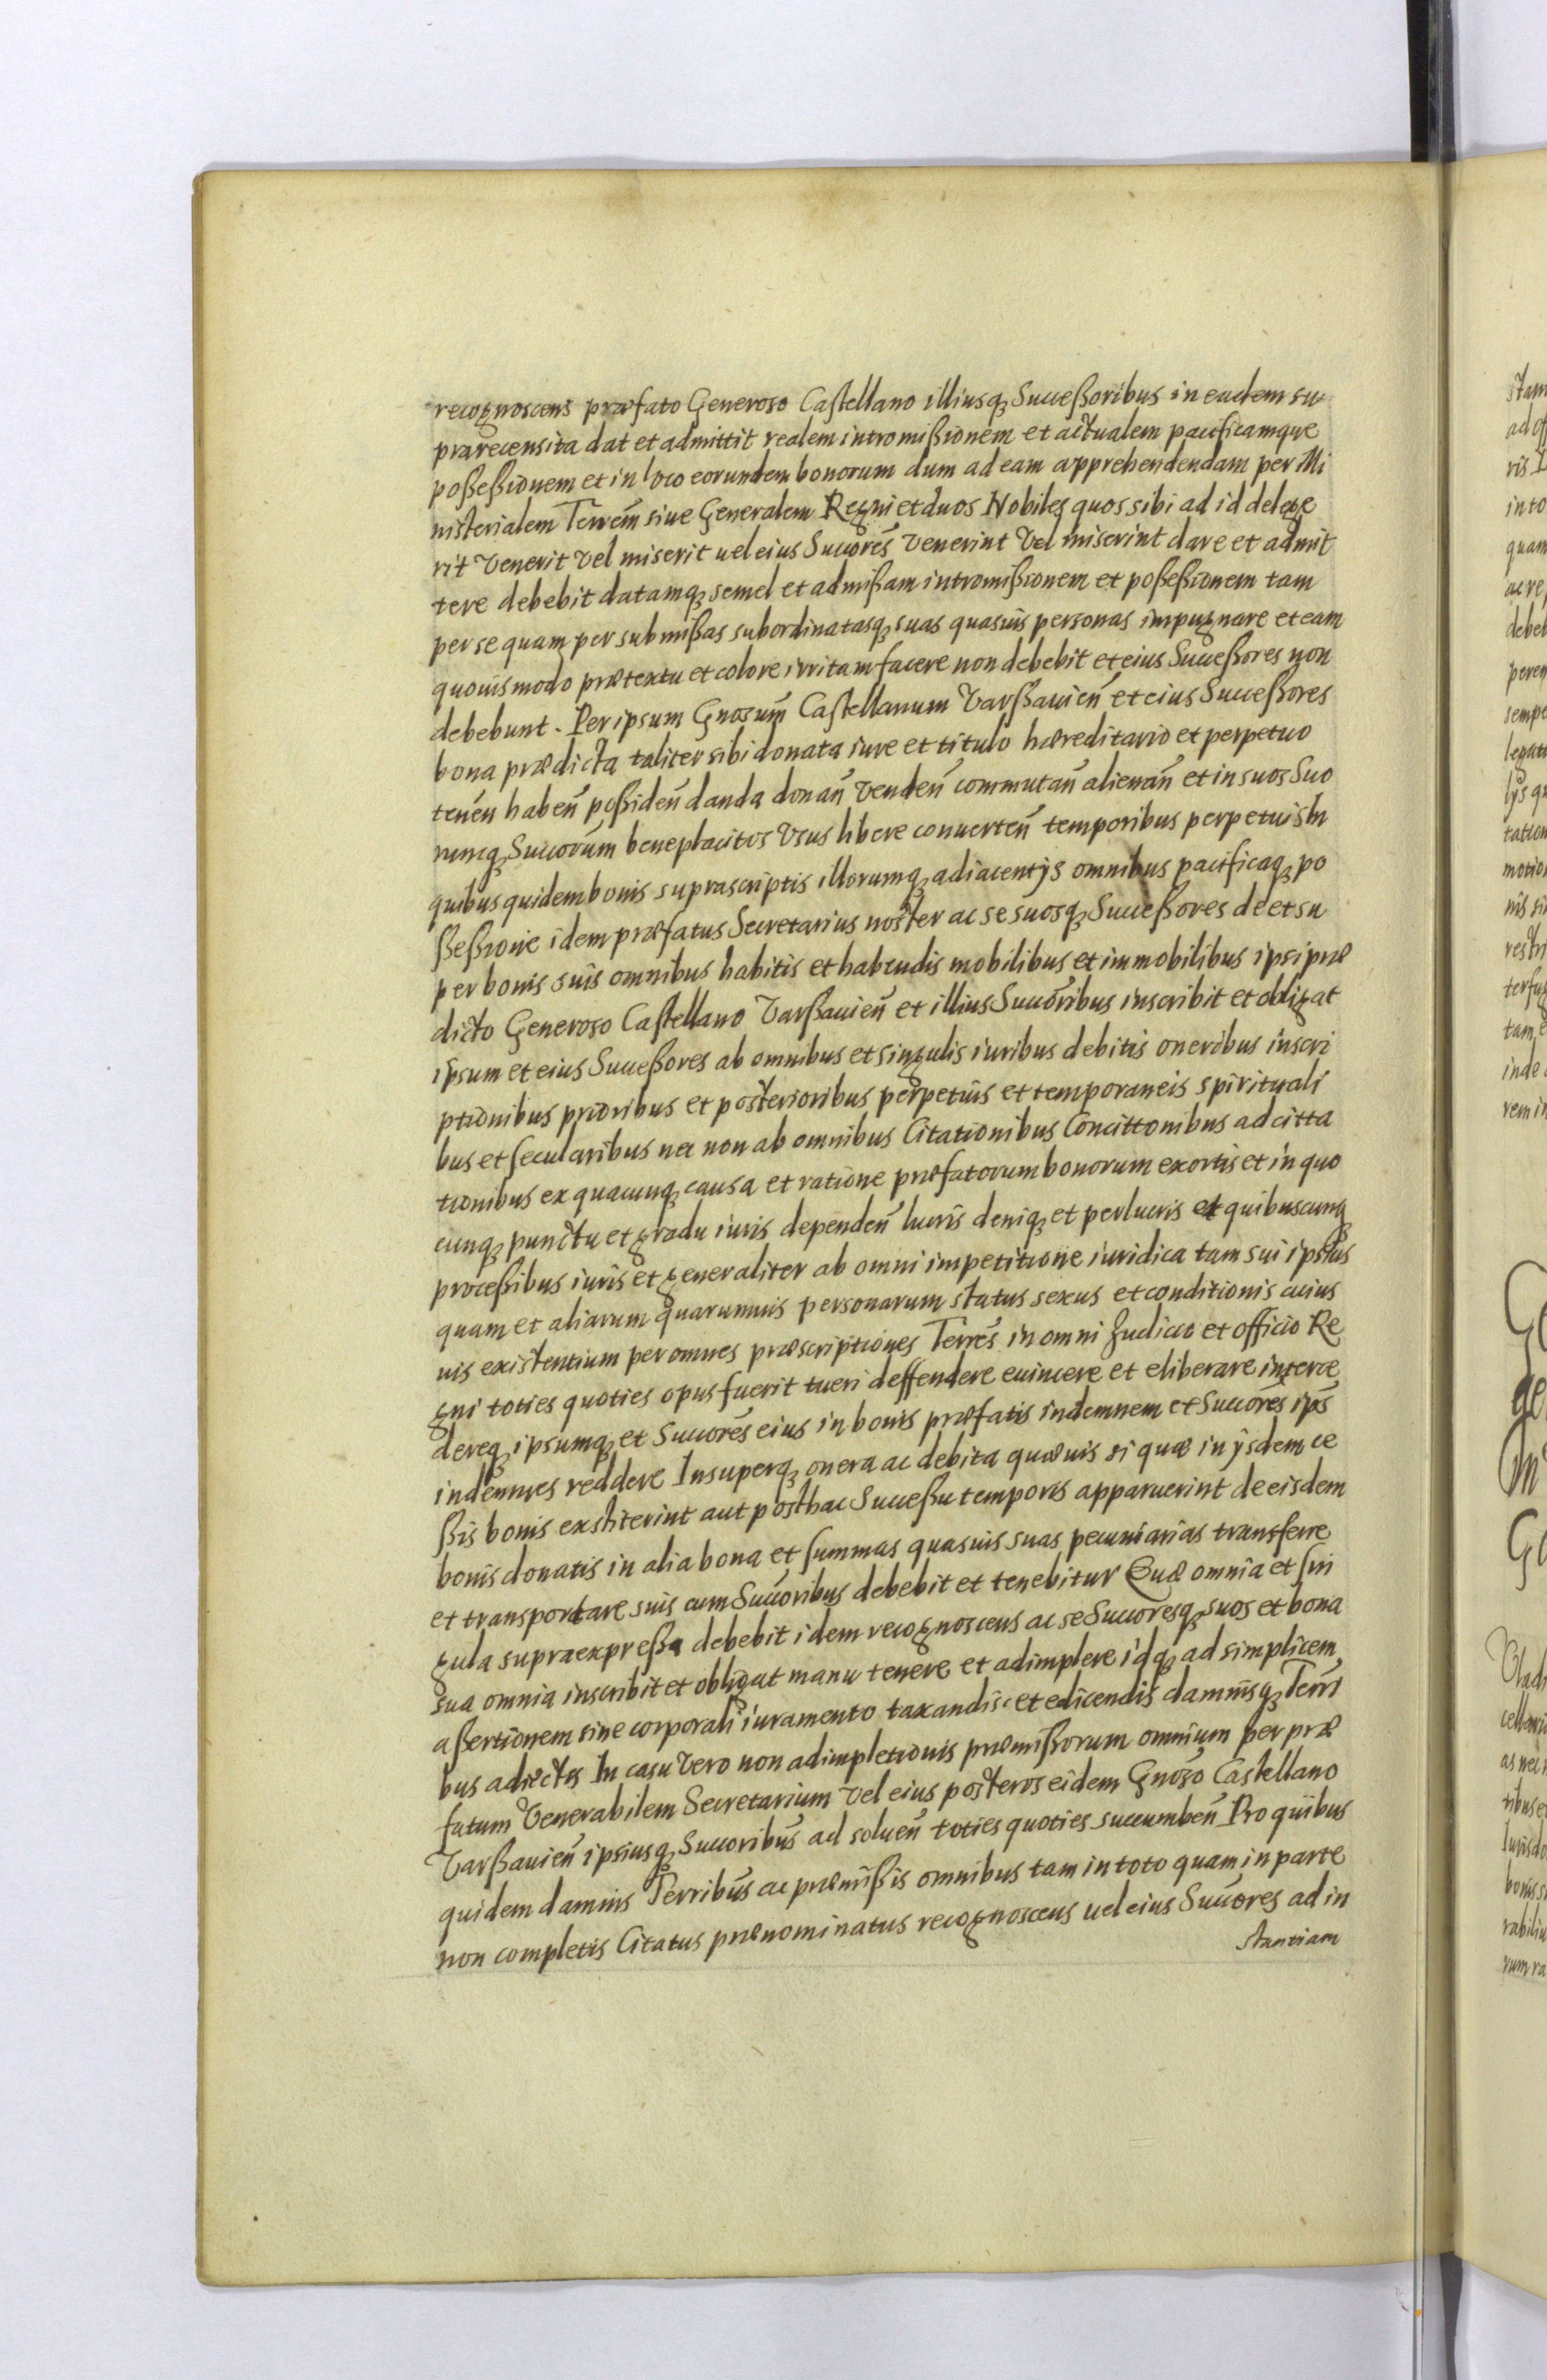 recognoscens præfato Generoso Castellano illiusq3 Successoribus in eadem su
prarecensita dat et admittit realem intromissionem et actualem pacificamque
possessionem et in loco eorundem bonorum dum ad eam apprehendendam per Mi
nisterialem Terrem̃ siue Generalem Regni et duos Nobiles quos sibi ad id delege
rit Venerit Vel miserit uel eius Succores̃ Venerint Vel miserint dare et admit
tere debebit datamq3 semel et admissam intromissionem et possessionem tam
per se quam per submissas subordinatasq3 suas quasuis personas impugnare et eam
quouismodo prætextu et colore irritam facere non debebit et eius Successores non
debebunt. Per ipsum Gnosum̃ Castellanum Varssauien̄ et eius Successores
bona prædicta taliter sibi donata iure et titulo hæreditario et perpetuo
tenen̄ haben̄ possiden̄ danda donan̄ venden̄ commutan̄ alienan̄ et in suos Suo
rumq3 Succorum̃ beneplacitos Vsus libere conuerten̄ temporibus perpetuis In
quibus quidem bonis suprascriptis illorumq3 adiacentijs omnibus pacificaq3 po
ssessione idem præfatus Secretarius noster ac se suosq3 Successores de et su
per bonis suis omnibus habitis et habendis mobilibus et immobilibus ipsi præ
dicto Generoso Castellano Varssauien̄ et illius Succoribus̃ inscribit et obligat
ipsum et eius Successores ab omnibus et singulis iuribus debitis oneribus inscri
ptionibus prioribus et posterioribus perpetuis et temporaneis spirituali
bus et secularibus nec non ab omnibus Citationibus Concittonibus ad citta
tionibus ex quacunq3 causa et ratione præfatorum bonorum exortis et in quo
cunq3 punctu et gradu iuris dependen̄ lucris deniq3 et perlucris et quibuscunq3
processibus iuris et generaliter ab omni impetitione iuridica tam sui ipsius
quam et aliarum quarumuis personarum status sexus et conditionis cuius
uis existentium per omnes præscriptiones Terres̃ in omni Judicio et officio Re
gni toties quoties opus fuerit tueri deffendere euincere et eliberare interce
dereq3 ipsumq3 et Succores̃ eius in bonis præfatis indemnem et Succores̃ ips̃
indemnes reddere Insuperq3 onera ac debita quæuis si quæ in ijsdem ce
ssis bonis exstiterint aut posthac Successu temporis apparuerint de eisdem
bonis donatis in alia bona et summas quasuis suas pecuniarias transferre
et transportare suis cum Succoribus̃ debebit et tenebitur Quæ omnia et sin
gula supraexpressa debebit idem recognoscens ac se Succoresq3 suos et bona
sua omnia inscribit et obligat manu tenere et adimplere idq3 ad simplicem
assertionem sine corporali iuramento taxandis et edicendis damnisq3 Terri
bus adiectis In casu Vero non adimpletionis præmissorum omnium per præ
fatum Venerabilem Secretarium Vel eius posteros eidem Gnoso̅ Castellano
Varssauien̄ ipsiusq3 Succoribus̃ ad soluen̄ toties quoties succumben̄ Pro quibus
quidem damnis Terribus̃ ac præmissis omnibus tam in toto quam in parte
non completis Citatus prænominatus recognoscens uel eius Succores̃ ad in
stantiam